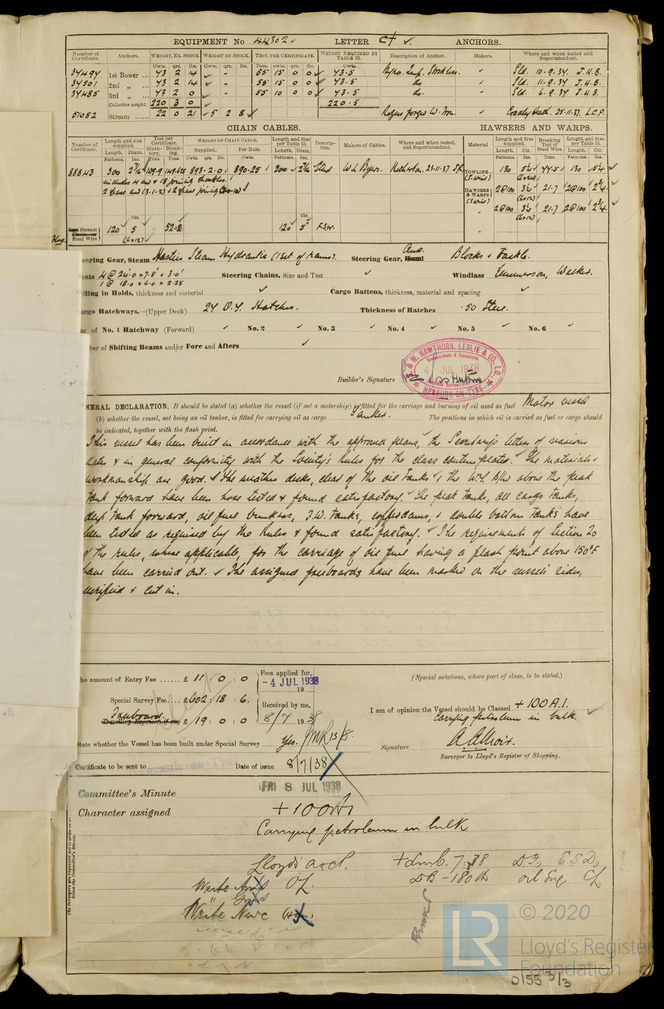 EQUIPMENT No 44302 LETTER c† ANCHORS.
Number of Certificate. Anchors. WEIGHT, EX. STOCK. WEIGHT OF STOCK. TEST, PER CERTIFICATE. WEIGHT REQUIRED BY TABLE 53. Description of Anchor. Makers. Where and when tested and Superintendent.
34494 1st Bower 43 2 14 - - 55 15 0 0 43.5 Sld. 10.9.37. J.H.B.
34501 2nd 43 2 14 - - 55 15 0 0 43.5 do Sld. 11.9.37. J.H.B.
34485 3rd 43 2 0 - - 55 10 0 0 43.5 do. Sld. 6.9.37. J.H.B.
Collective weight. 220.5
51082 Stream 22 0 21 5 2 8 Cradley Heath. 25.11.37. L.C.P.
CHAIN CABLES. HAWSERS AND WARPS.
Number of Certificate. Length and size supplied. Test per Certificate. WEIGHT OF CHAIN CABLE. Length and Size per Table 53. Description. Makers of Cables. Where and when tested, and Superintendent. Material Length and Size supplied. Breaking Test of Steel Wire. Length and Size per Table 53.
Supplied. Per Rule.
Fathoms. Diam.
88843 300 890.25 300 Stud Netherton. 25.11.37
TOWLINE (S. wire) 130 44.5 130
HAWSERS & WARPS (S. wire) 2@100 3½ 21.7 2@100 2¾
2@100 3½ 21.7 2@100 2¾
Stream Steel Wire 120 5 (6x12) 52.2 120 5 F.S.W.
Steering Gear, Steam Hastie Steam Hydraulic (1 set of rams). Steering Gear, Aux. Blocks & Tackle.
4 @ 24.0 x 7.5 x 3.0 Steering Chains, Size and Test Windlass Emmerson, Walker.
1 @ 18.0 x 6.0 x 2.25
Ceiling in Holds, thickness and material Cargo Battens, thickness, material and spacing
Cargo Hatchways.—(Upper Deck) 24 O.T. Hatches. Thickness of Hatches .50 Steel.
of No. 1 Hatchway (Forward) No. 2 No. 3 No. 4 No. 5 No. 6
Number of Shifting Beams and/or Fore and Afters
R. & W. HAWTHORN, LESLIE & CO. LD.
4 JUL 1938
HEBBURN-ON-TYNE
Builder's Signature
GENERAL DECLARATION. It should be stated (a) whether the vessel (if not a motorship) is fitted for the carriage and burning of oil used as fuel Motor vessel
(b) whether the vessel, not being an oil tanker, is fitted for carrying oil as cargo Tanker. The positions in which oil is carried as fuel or cargo should
be indicated, together with the flash point.
This vessel has been built in accordance with the approved plans, the Secretary's letters of various
dates & in general conformity with the Society's Rules for the class contemplated. The materials &
workmanship are good. The weather decks, clear of the oil tanks, & the W.T. bhds above the peak
tank forward have been hose tested & found satisfactory. The peak tanks, all cargo tanks,
deep tank forward, oil fuel bunkers, F.W. tanks, cofferdams, & double bottom tanks have
been tested as required by the Rules & found satisfactory. The requirements of Section 20
of the rules, where applicable, for the carriage of oil fuel having a flash point above 150°F
have been carried out. The assigned freeboards have been marked on the vessel's sides,
verified & cut in.
The amount of Entry Fee £ 11 : 0 : 0 Fees applied for,
-4 JUL 1938
Special Survey Fee £ 602 : 18 : 6. Received by me,
Freeboard £ 19 : 0 : 0 8/7 1938
(Special notations, where part of class, to be stated.)
I am of opinion the Vessel should be Classed + 100 A.1.
Carrying petroleum in bulk.
State whether the Vessel has been built under Special Survey Yes.
Signature
Surveyor to Lloyd's Register of Shipping.
Certificate to be sent to Date of issue 8/7/38
FRI 8 JUL 1938
Committee's Minute
Character assigned +100A1
Carrying petroleum in bulk
Lloyds A&CP. +LMC. 7.38 D.F. E.S.D.
DB-180 lb oil Eng CL
Write
Write Newc
LR
© 2020
Lloyd's Register
Foundation
0155 3/3